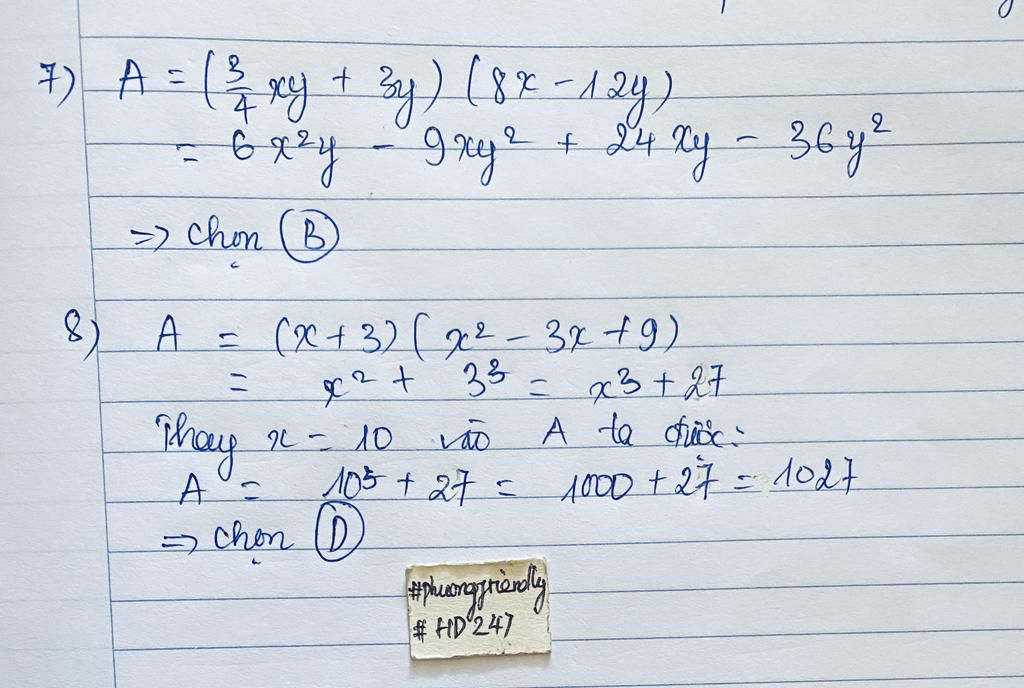 7) A = (3/4 xy + 3y) (8x - 12y)
= 6x²y - 9xy² + 24xy - 36y²
=> chọn (B)
8) A = (x+3)(x² - 3x + 9)
= x² + 3³ = x³ + 27
Thay x = 10 vào A ta được:
A = 10³ + 27 = 1000 + 27 = 1027
=> chọn (D)
#phuongfriendly
# HD247